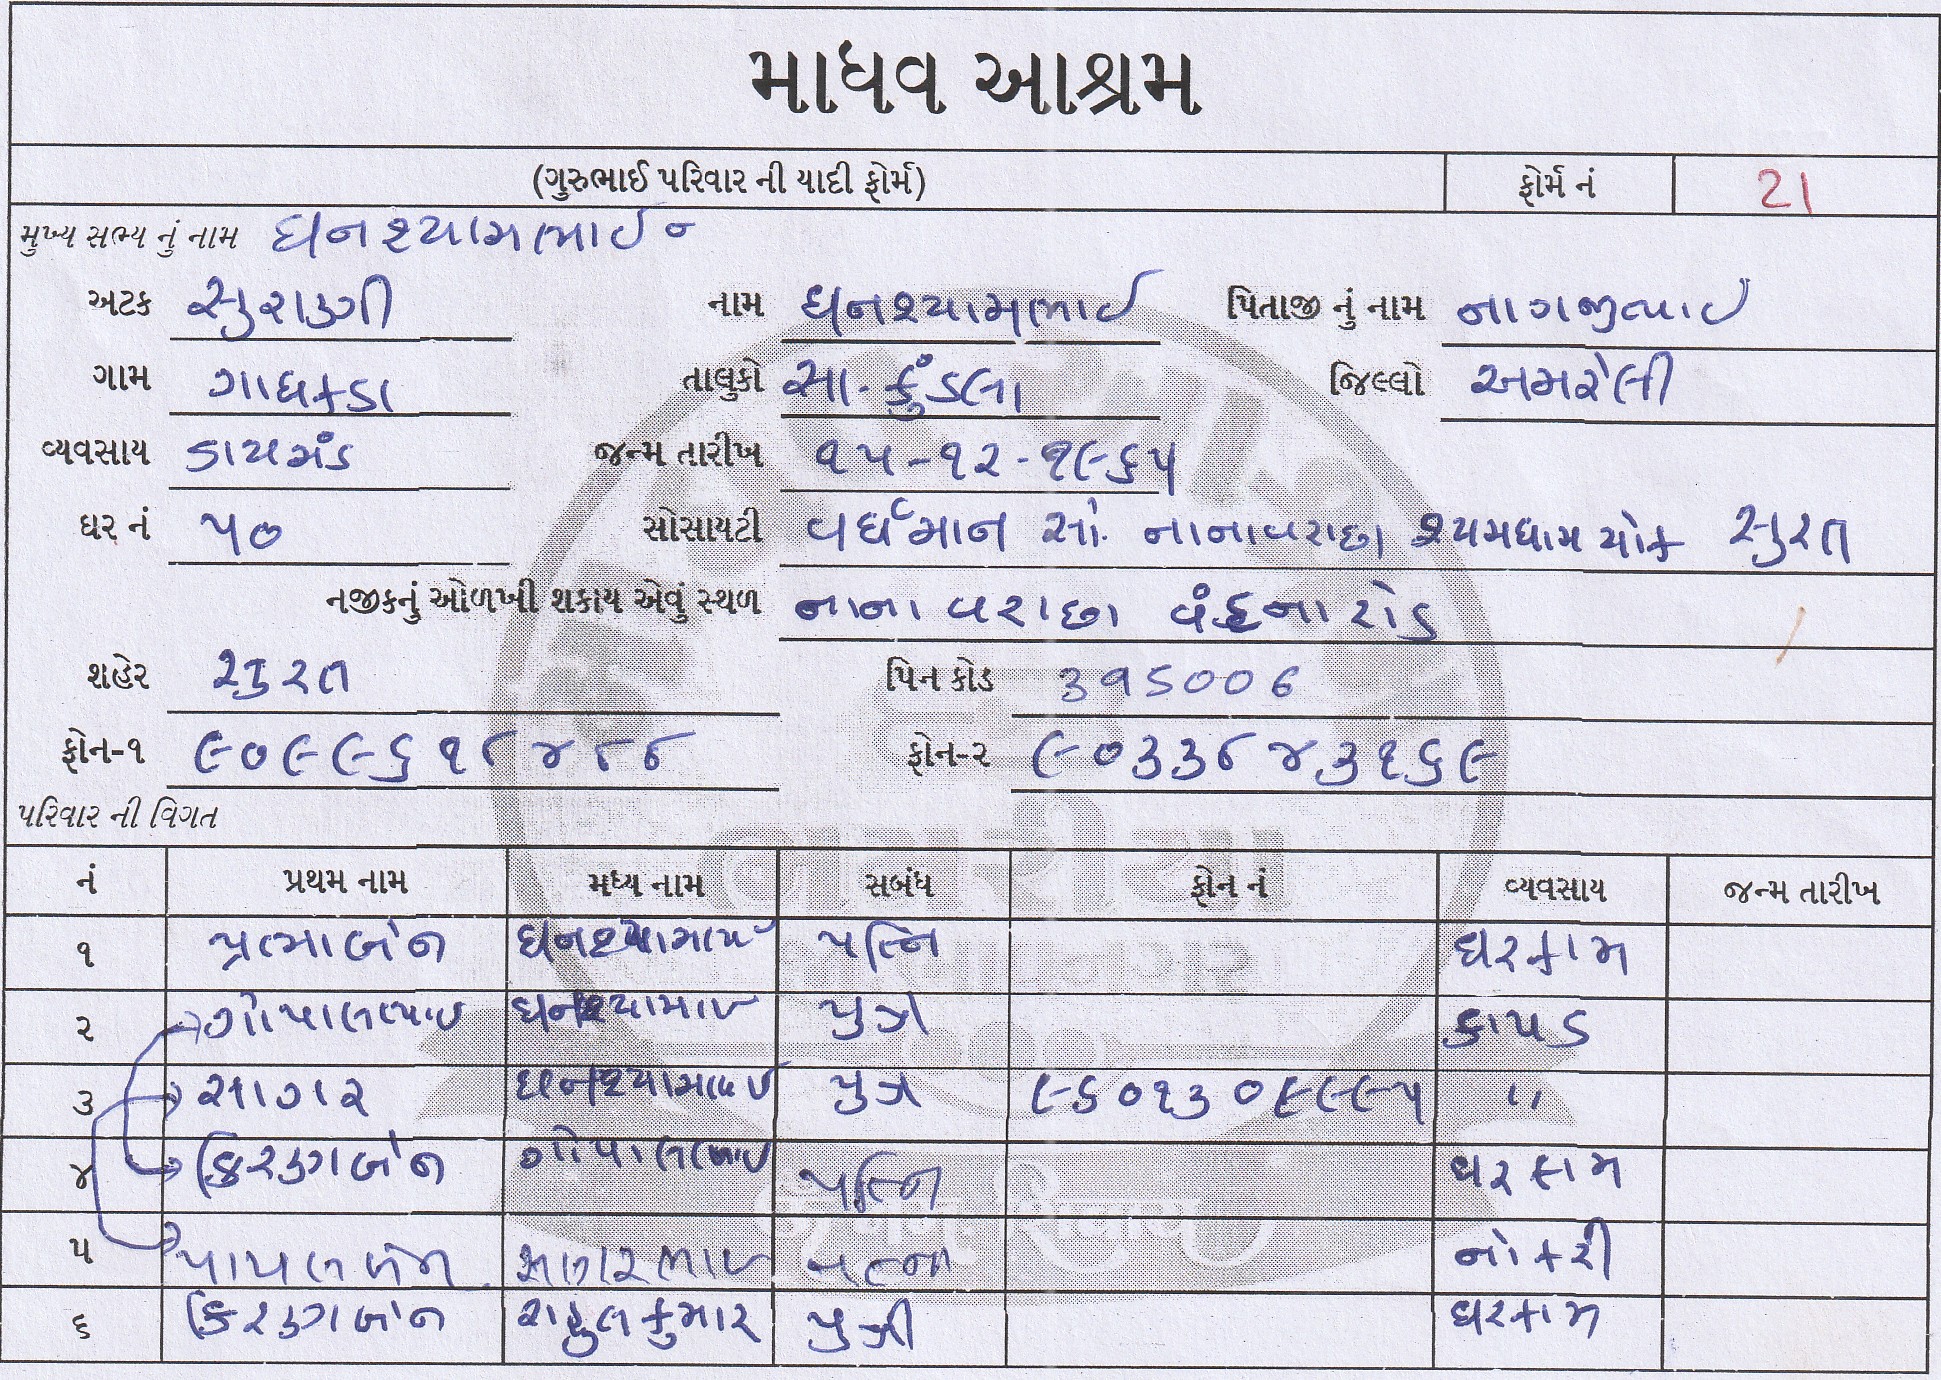 માધવ આશ્રમ
(ગુરુભાઈ પરિવાર ની યાદી ફોર્મ) ફોર્મ નં 21
મુખ્ય સભ્ય નું નામ ઘનશ્યામભાઈ ન
અટક સુરાણી નામ ઘનશ્યામભાઈ પિતાજી નું નામ નાગજીભાઈ
ગામ ગાધકડા તાલુકો સા. કુંડલા જિલ્લો અમરેલી
વ્યવસાય ડાયમંડ જન્મ તારીખ ૧૫-૧૨-૧૯૬૫
ઘર નં ૫૦ સોસાયટી વર્ધમાન સો. નાનાવરાછા શ્યામધામ ચોક સુરત
નજીકનું ઓળખી શકાય એવું સ્થળ નાના વરાછા વંદના રોડ
શહેર સુરત પિન કોડ ૩૧૫૦૦૬
ફોન-૧ ૯૦૯૯૬૧૮૪૮૮ ફોન-૨ ૯૦૩૩૮૪૩૧૬૯
પરિવાર ની વિગત
નં પ્રથમ નામ મધ્ય નામ સબંધ ફોન નં વ્યવસાય જન્મ તારીખ
૧ પ્રભાબેન ઘનશ્યામભાઈ પત્નિ ઘરકામ
૨ ગોપાલભાઈ ઘનશ્યામભાઈ પુત્ર કાપડ
૩ સાગર ઘનશ્યામભાઈ પુત્ર ૯૬૦૧૩૦૯૯૯૫ "
૪ કિરણબેન ગોપાલભાઈ પત્નિ ઘરકામ
૫ પાયલબેન સાગરભાઈ પત્ની નોકરી
૬ કિરણબેન રાહુલકુમાર પુત્રી ઘરકામ